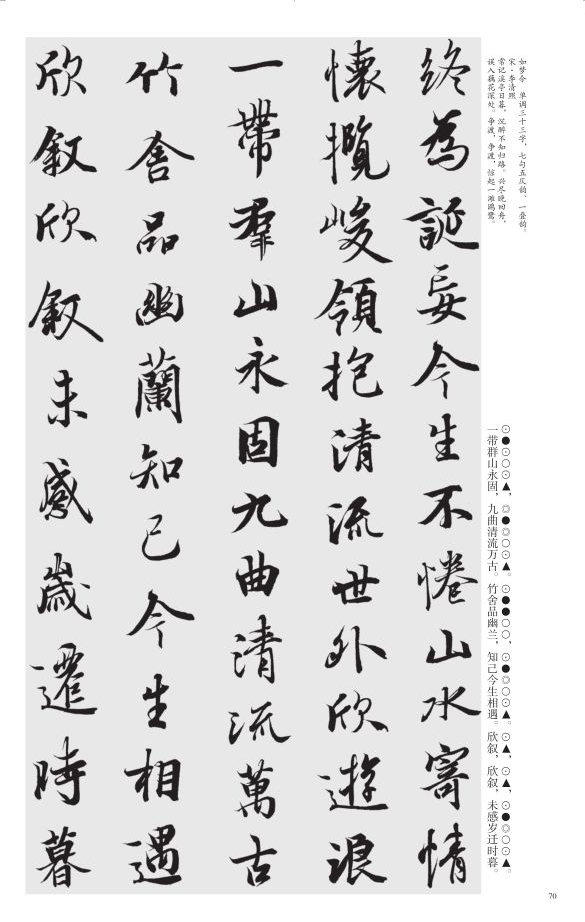 如梦令 单调三十三字，七句五仄韵、一叠韵。
宋·李清照
常记溪亭日暮，沉醉不知归路。兴尽晚回舟，
误入藕花深处。争渡，争渡，惊起一滩鸥鹭。
⊙●⊙○⊙▲，◎●◎○⊙▲。⊙●●○○，⊙●◎○⊙▲。⊙▲，⊙▲，⊙●◎○○▲。
一带群山永固，九曲清流万古。竹舍品幽兰，知己今生相遇。欣叙，欣叙，未感岁迁时暮。
終為誕妄今生不惓山水寄情
懷攬峻領抱清流世外欣遊浪
一帶羣山永固九曲清流萬古
竹舍品幽蘭知己今生相遇
欣叙欣叙未感歲遷時暮
70